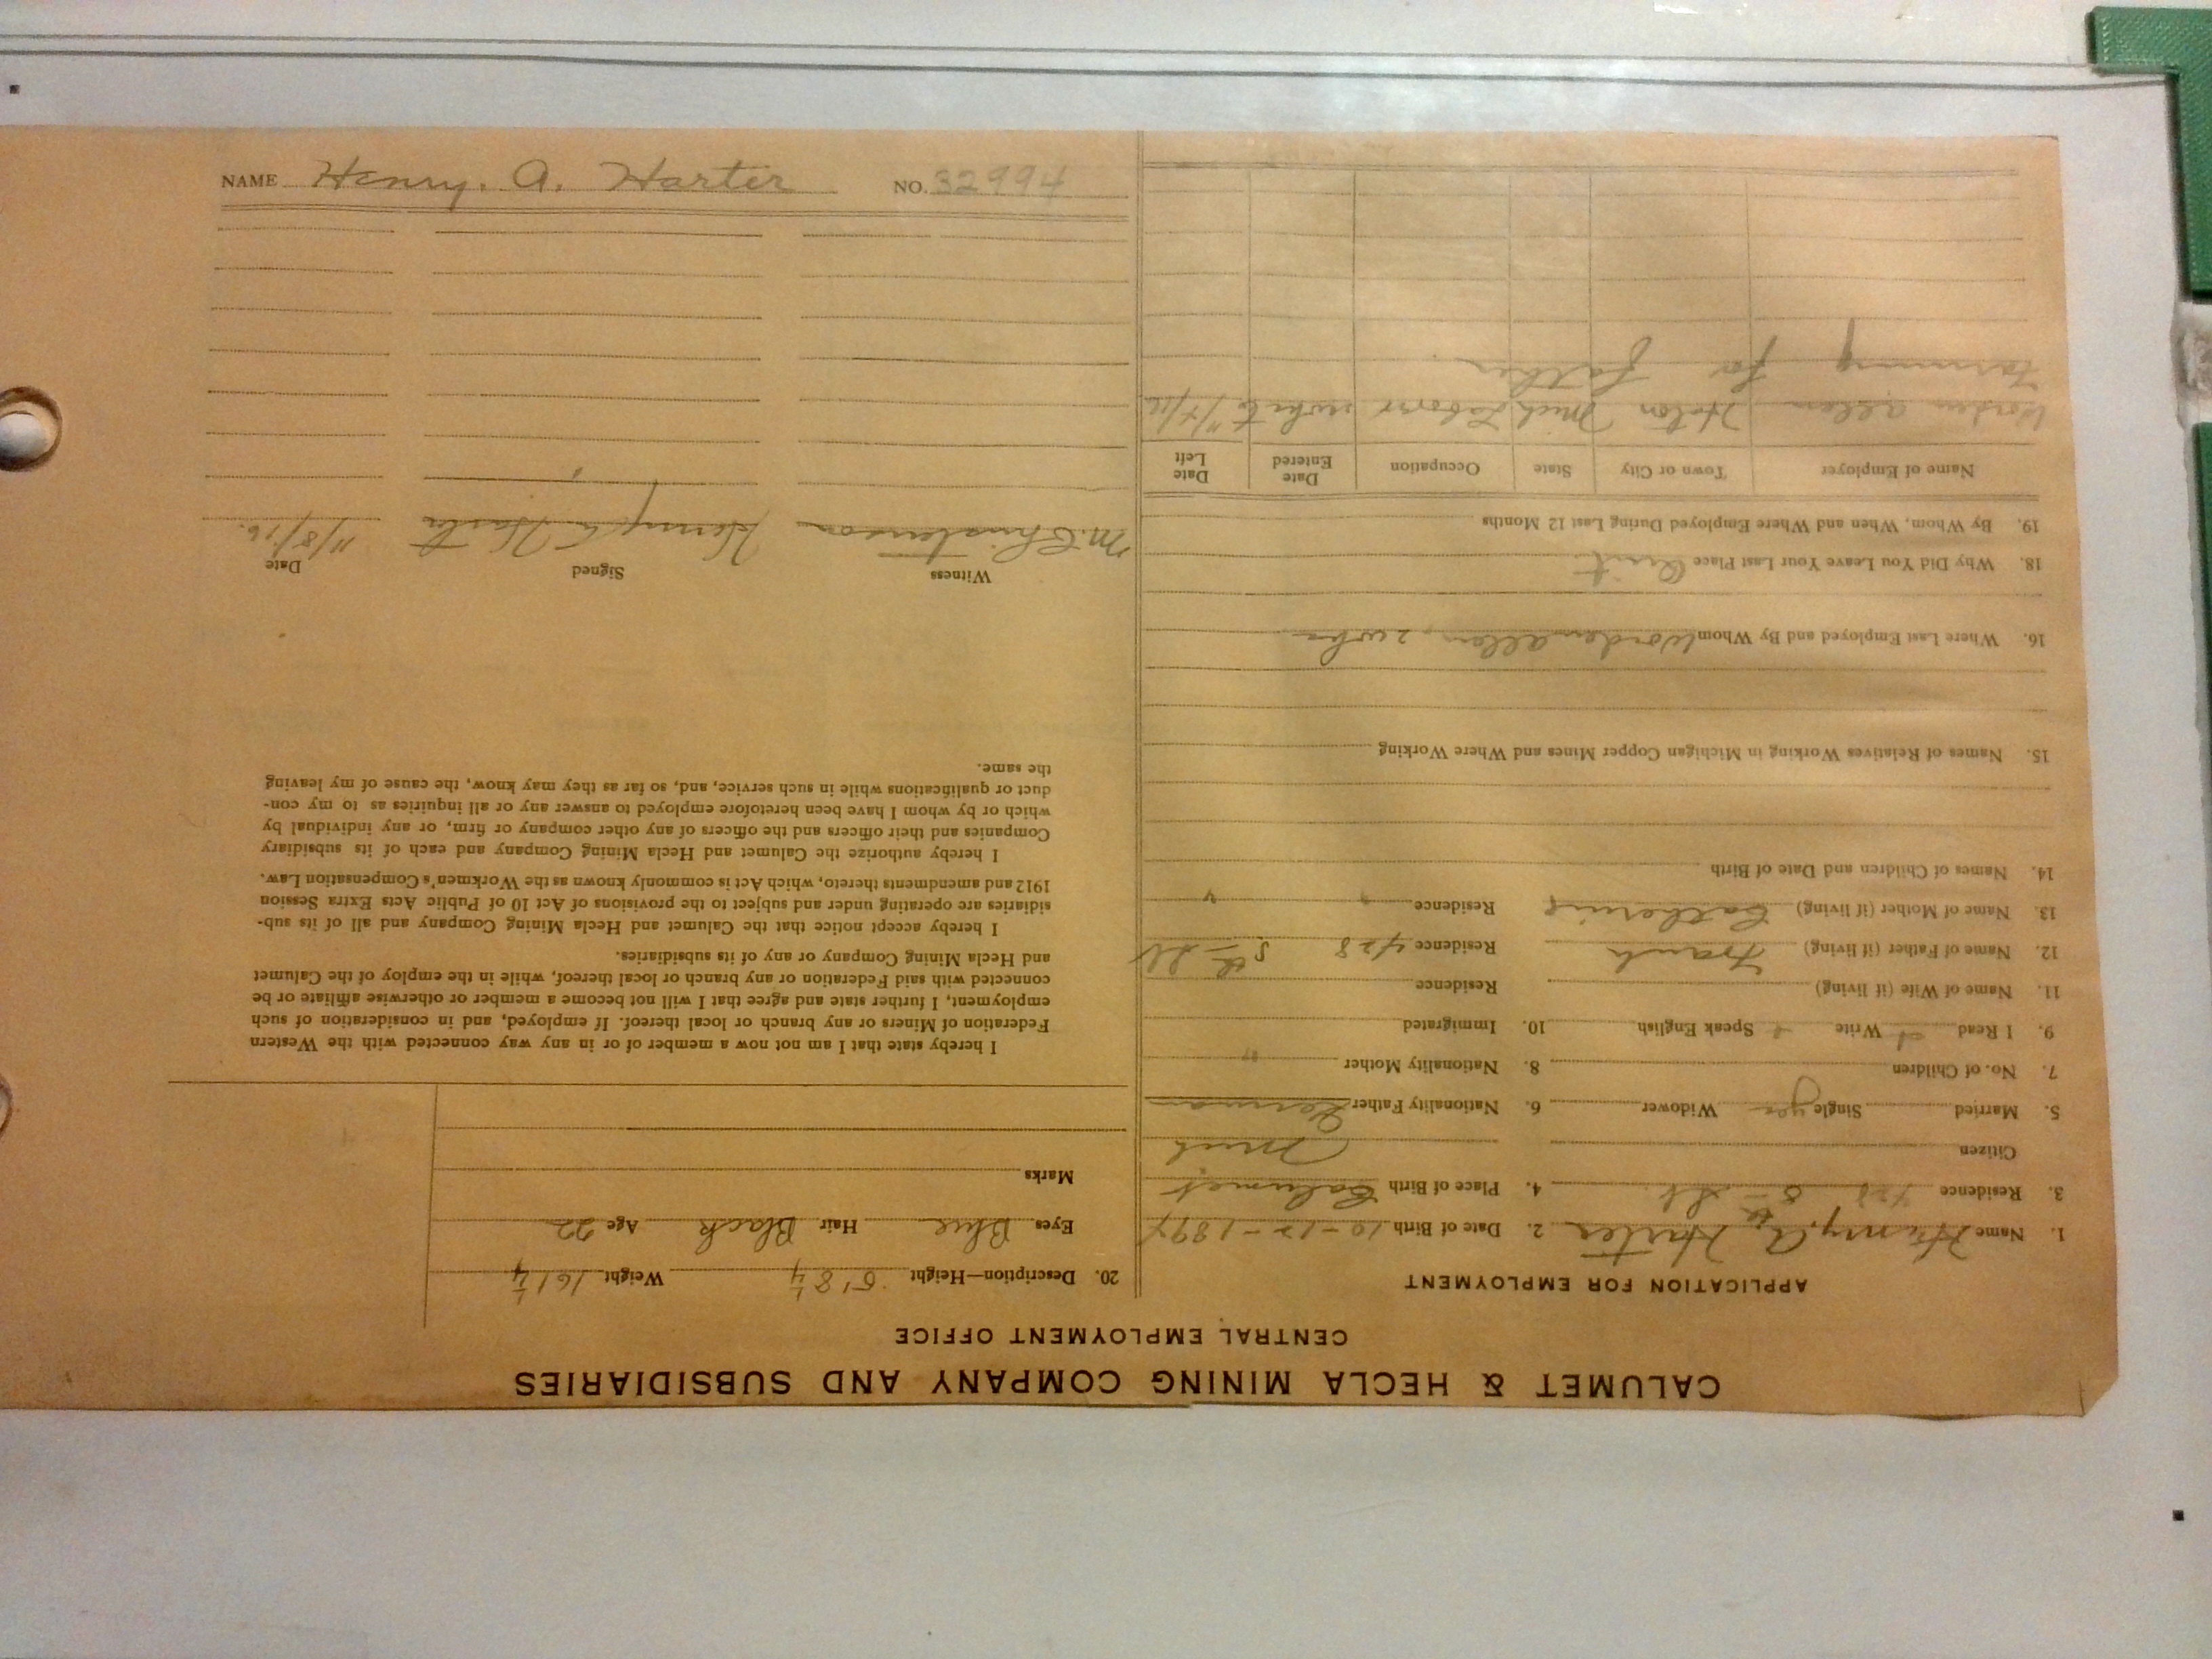 CALUMET & HECLA MINING COMPANY AND SUBSIDIARIES
CENTRAL EMPLOYMENT OFFICE
APPLICATION FOR EMPLOYMENT
1. Name Henry. A. Harter 2. Date of Birth 10-12-1894
3. Residence 428 8th St. 4. Place of Birth Calumet
Citizen Mich
5. Married Single yes Widower 6. Nationality Father German
7. No. of Children 8. Nationality Mother "
9. I Read Write Speak English 10. Immigrated
11. Name of Wife (if living) Residence
12. Name of Father (if living) Frank Residence 428 8th St
13. Name of Mother (if living) Catherine Residence " "
14. Names of Children and Date of Birth
15. Names of Relatives Working in Michigan Copper Mines and Where Working
16. Where Last Employed and By Whom Worden Allen, 2 wks
18. Why Did You Leave Your Last Place Quit
19. By Whom, When and Where Employed During Last 12 Months
Name of Employer Town or City State Occupation Date Entered Date Left
Worden Allen Mich Laborer 11/4/16
Farming for father
20. Description—Height 5' 8 1/4 Weight 161 1/4
Eyes Blue Hair Black Age 22
Marks
I hereby state that I am not now a member of or in any way connected with the Western
Federation of Miners or any branch or local thereof. If employed, and in consideration of such
employment, I further state and agree that I will not become a member or otherwise affiliate or be
connected with said Federation or any branch or local thereof, while in the employ of the Calumet
and Hecla Mining Company or any of its subsidiaries.
I hereby accept notice that the Calumet and Hecla Mining Company and all of its sub-
sidiaries are operating under and subject to the provisions of Act 10 of Public Acts Extra Session
1912 and amendments thereto, which Act is commonly known as the Workmen's Compensation Law.
I hereby authorize the Calumet and Hecla Mining Company and each of its subsidiary
Companies and their officers and the officers of any other company or firm, or any individual by
which or by whom I have been heretofore employed to answer any or all inquiries as to my con-
duct or qualifications while in such service, and, so far as they may know, the cause of my leaving
the same.
Witness Signed Date
M. Christenson Henry A Harter 11/8/16.
NAME Henry. A. Harter NO. 32994